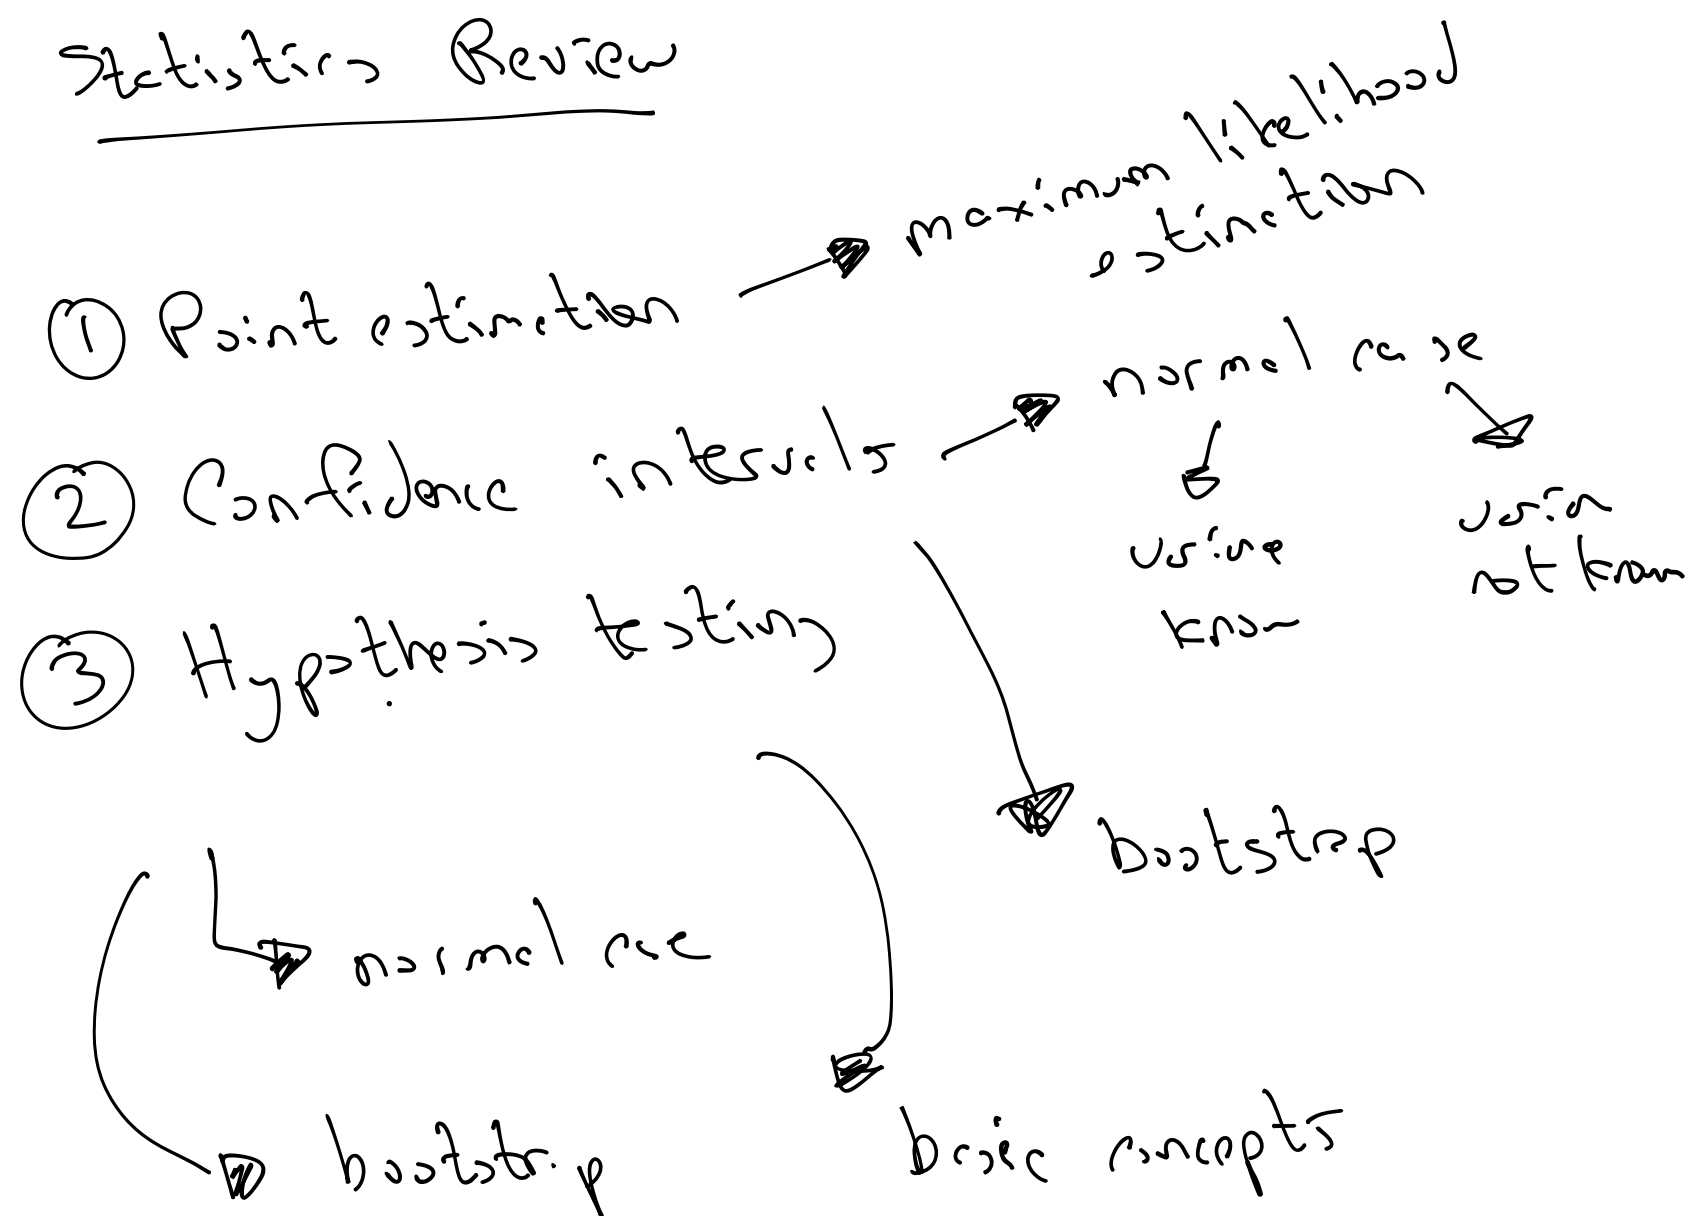 Statistics Review
① Point estimation
maximum likelihood
estimation
② Confidence intervals
normal case
known
not known
③ Hypothesis testing
bootstrap
normal case
bootstrap
basic concepts